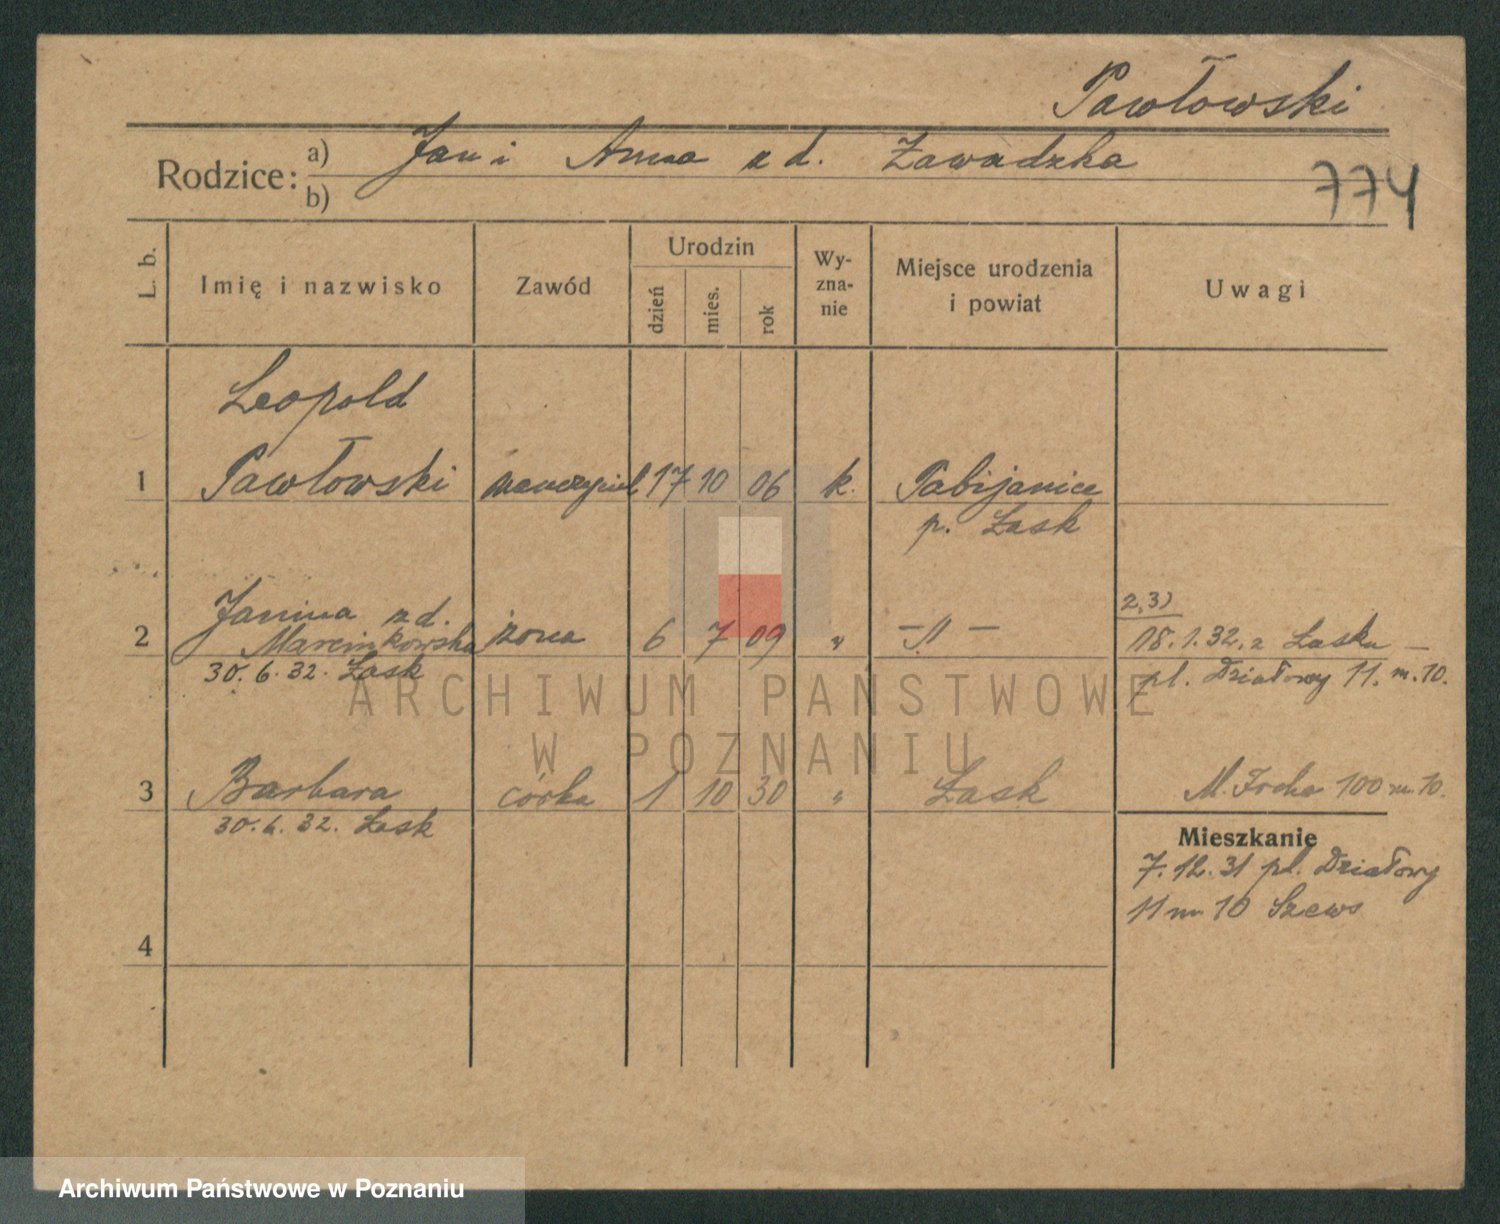 Pawłowski
Rodzice: a) Jan i Anna z d. Zawadzka
b)
774
L. b.
Imię i nazwisko
Zawód
Urodzin
dzień
mies.
rok
Wy-
zna-
nie
Miejsce urodzenia
i powiat
Uwagi
Leopold
1 Pawłowski nauczyciel 17 10 06 k. Pabijanice
p. Łask
2,3)
Janina z d.
2 Marcinkowska żona 6 7 09 " —"— 18.1.32. z Łasku —
30.6.32. Łask
pl. Działowy 11. m. 10.
3 Barbara córka 1 10 30 " Łask
M. Focha 100 m. 10.
30.6.32. Łask
Mieszkanie
7.12.31 pl. Działowy
11 m 10 Szews
4
ARCHIWUM PAŃSTWOWE
W POZNANIU
Archiwum Państwowe w Poznaniu